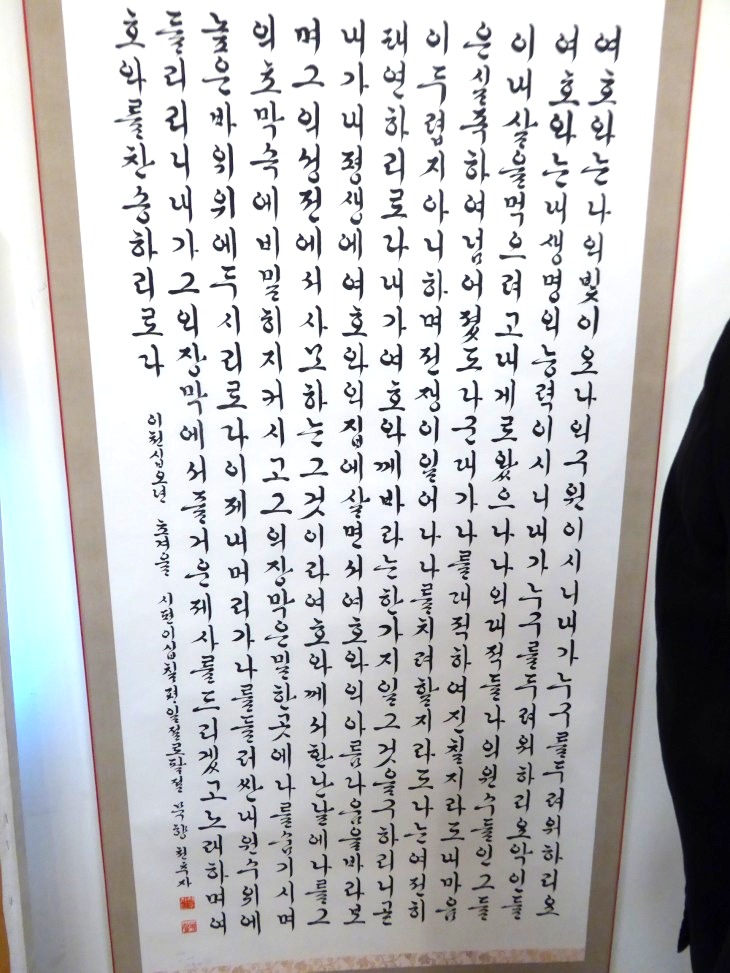 여호와는나의빛이오나의구원이시니내가누구를두려워하리오
여호와는내생명의능력이시니내가누구를두려워하리오악인들
이내살을먹으려고내게로왔으나나의대적들나의원수들인그들
은실족하여넘어졌도다군대가나를대적하여진칠지라도내마음
이두렵지아니하며전쟁이일어나나를치려할지라도나는여전히
태연하리로다내가여호와께바라는한가지일그것을구하리니곧
내가내평생에여호와의집에살면서여호와의아름다움을바라보
며그의성전에서사모하는그것이라여호와께서환난날에나를그
의초막속에비밀히지키시고그의장막은밀한곳에나를숨기시며
높은바위위에두시리로다이제내머리가나를둘러싼내원수위에
들리리니내가그의장막에서즐거운제사를드리겠고노래하며여
호와를찬송하리로다
이천십오년 초겨울 시편이십칠편